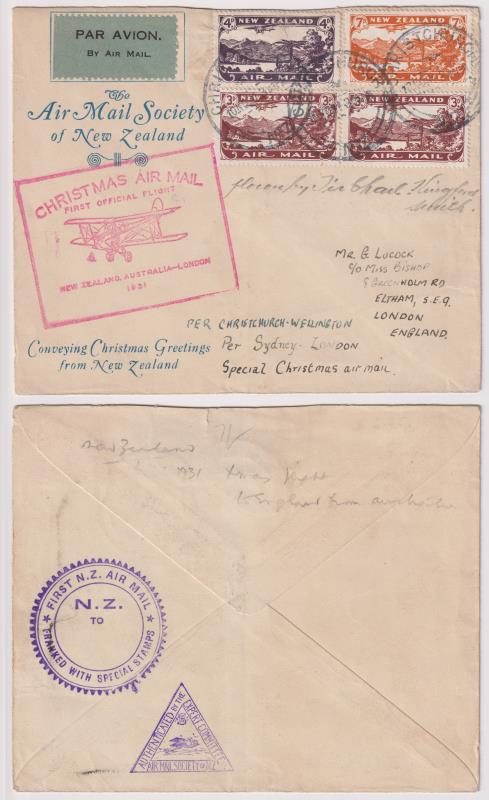 PAR AVION.
BY AIR MAIL.
The
Air Mail Society
of New Zealand
4D
NEW ZEALAND
AIR MAIL
7D
NEW ZEALAND
AIR MAIL
3D
NEW ZEALAND
AIR MAIL
3D
NEW ZEALAND
AIR MAIL
CHRISTMAS AIR MAIL
FIRST OFFICIAL FLIGHT
NEW ZEALAND, AUSTRALIA-LONDON
1931
flown by Sir Charles Kingsford
Smith.
MR. G LUCOCK
C/O MISS BISHOP
GREENHOLM RD
ELTHAM, S.E.9.
LONDON
ENGLAND.
PER CHRISTCHURCH-WELLINGTON
Per Sydney-LONDON
Special Christmas air mail.
Conveying Christmas Greetings
from New Zealand
New Zealand
1931 Xmas flight
to England from Australia
7/-
★ FIRST N.Z. AIR MAIL ★
N.Z.
TO
FRANKED WITH SPECIAL STAMPS
AUTHENTICATED BY THE
EXPERT COMMITTEE
AIR MAIL SOCIETY OF N.Z.